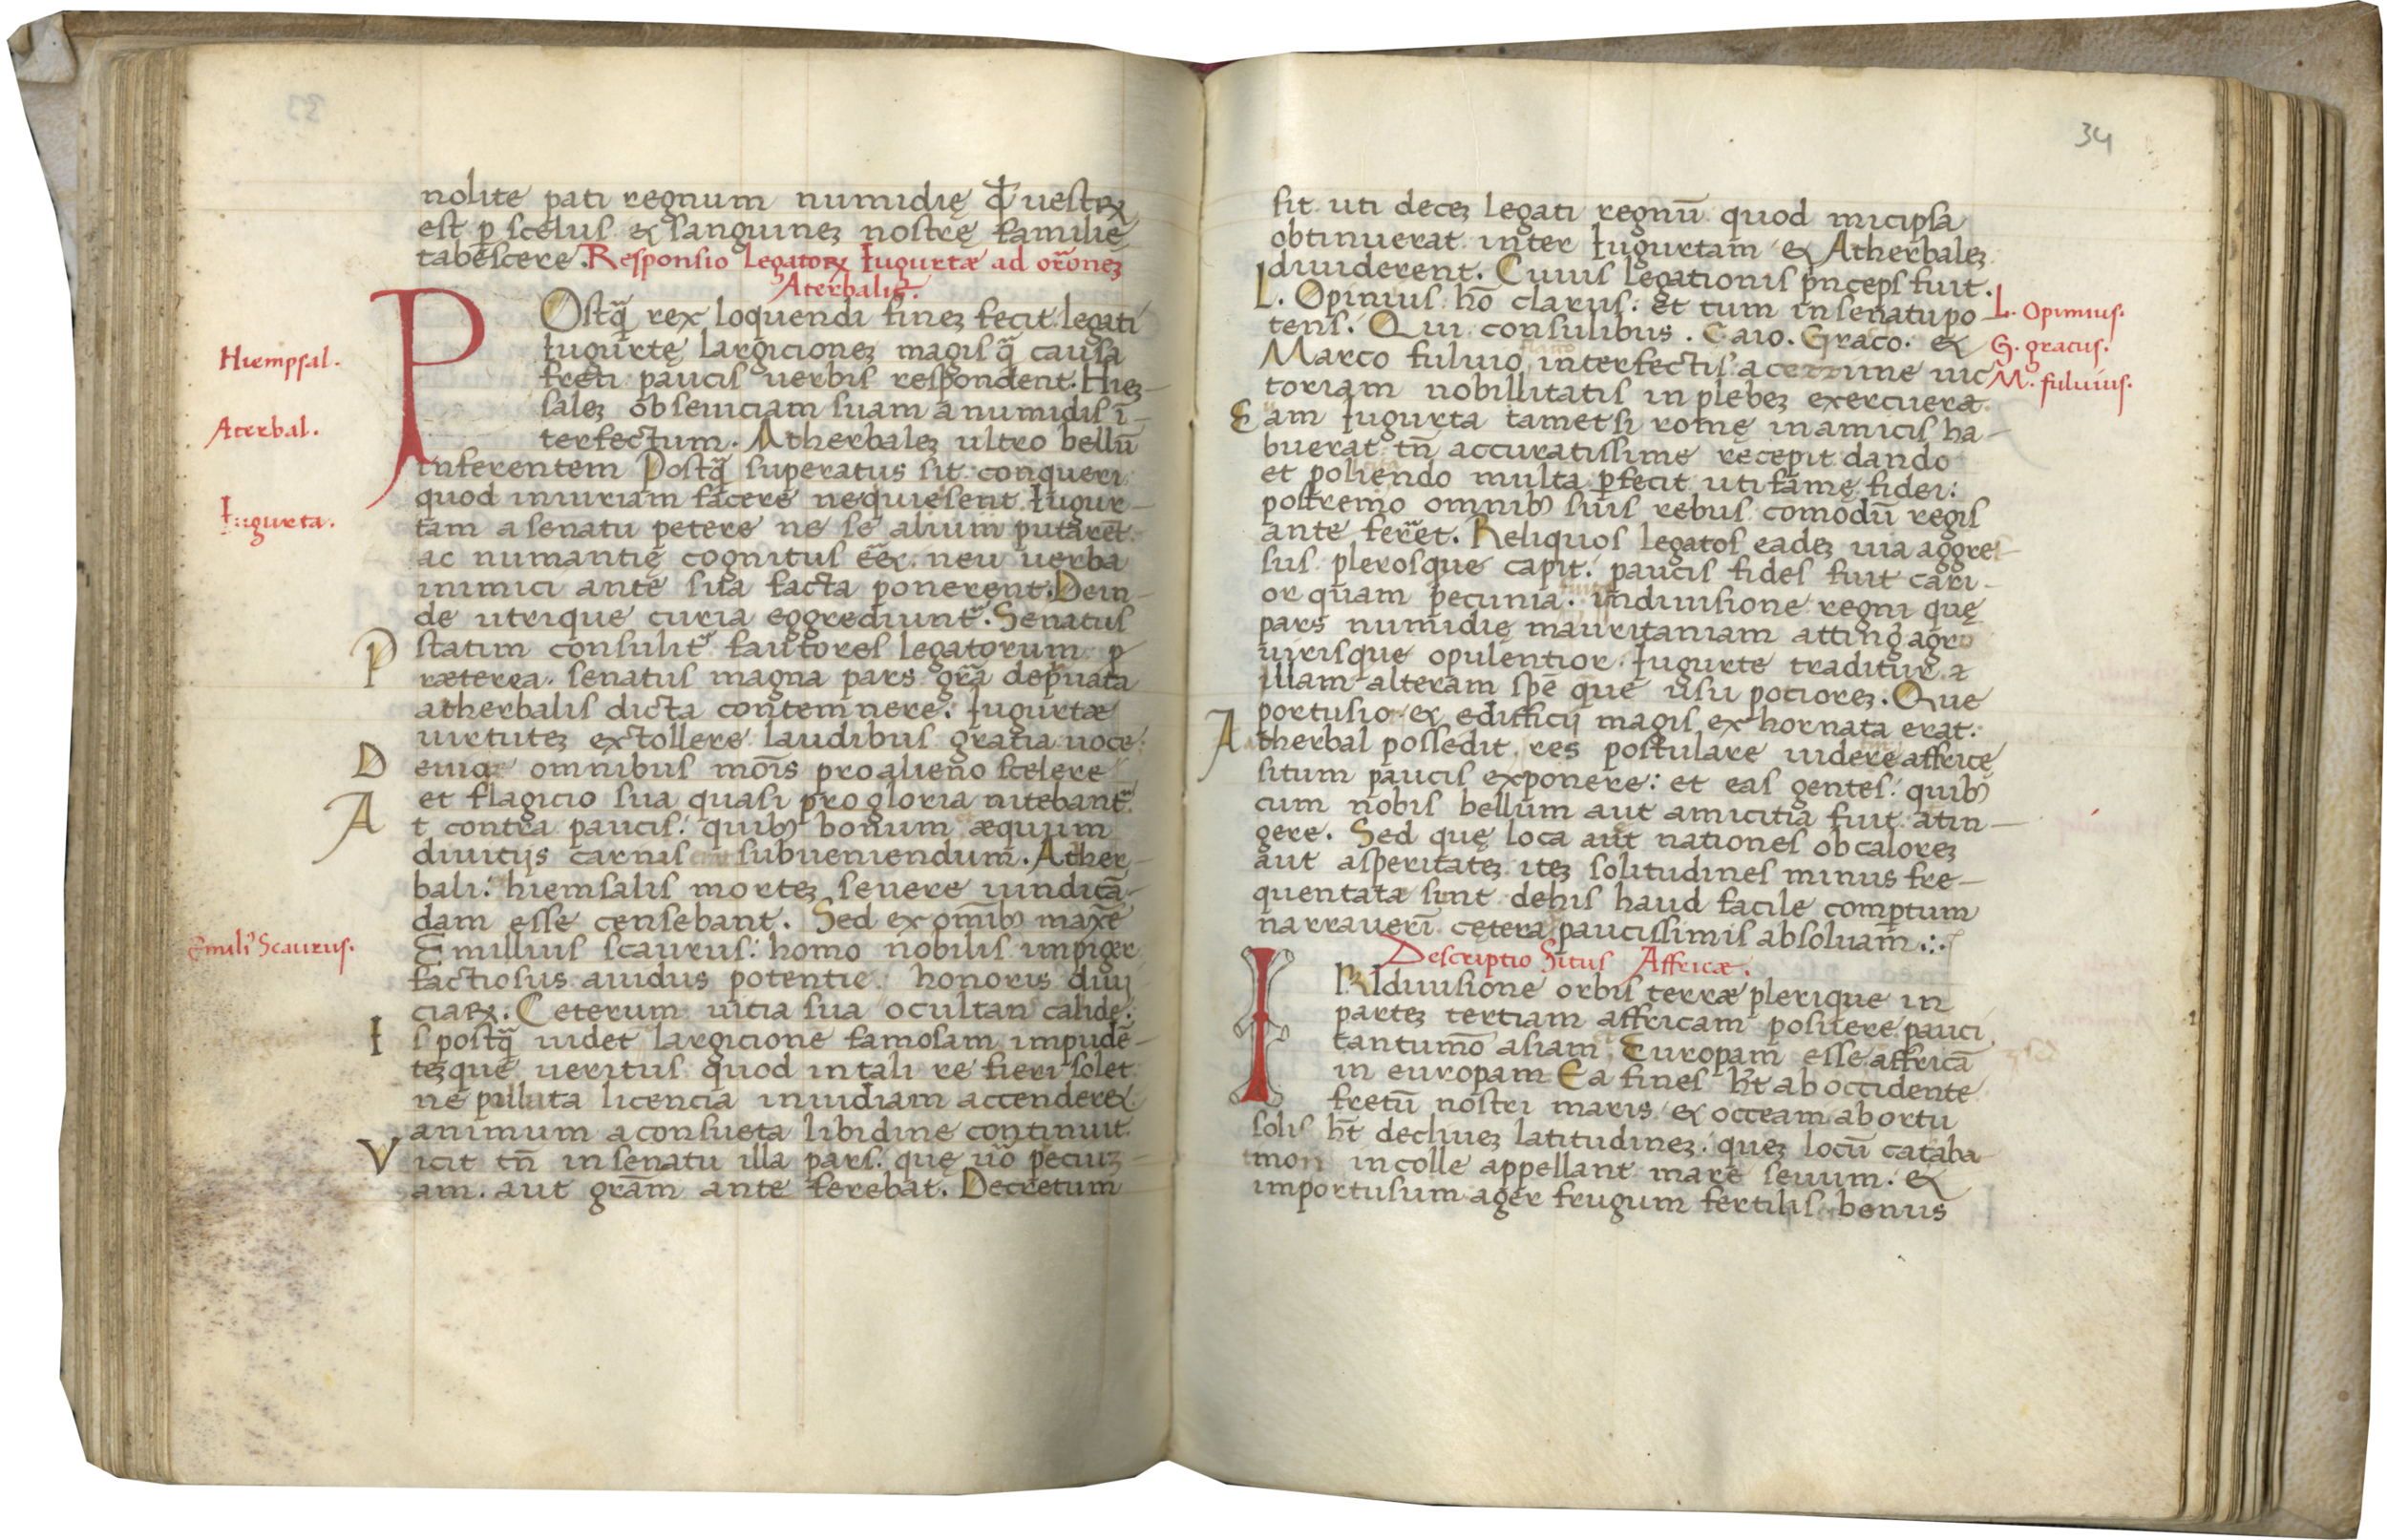 nolite pati regnum numidię q̄ uestrꝝ
est ꝑ scelus ⁊ sanguineꝫ nostrę familię
tabescere. Responsio Legatorꝝ Iugurtæ ad or̃oneꝫ
Aterbalis.
POstq̃ rex loquendi fineꝫ fecit legati
Iugurtę largicioneꝫ magis q̃ causa
freti paucis uerbis respondent. Hieꝫ-
saleꝫ ob seuiciam suam a numidis ī-
terfectum. Atherbaleꝫ ultro bellū
inferentem Postq̃ superatus sit conqueri
quod iniuriam facere nequiesent Iugur-
tam a senatu petere ne se alium putarēt
ac numantię cognitus eēꝫ neu uerba
inimici ante sua facta ponerent. Dein-
de utrique curia eggrediunt̃. Senatus
statim consulit̃ fautores legatorum p
ræterea senatus magna pars gr̃a depr̃uata
atherbalis dicta contemnere. Iugurtæ
uirtuteꝫ extollere laudibus gratia uoce
D enique omnibus mōis pro alieno scelere
et flagicio sua quasi pro gloria nitebant̃
A t contra paucis quibꝰ bonum æquum
diuitijs carnis subueniendum. Ather-
bali: hiemsalis morteꝫ seuere uindicā-
dam esse censebant. Sed ex omībꝰ maxe
Emillius scaurus: homo nobilis impiger
factiosus auidus potentie honoris diui
ciaꝝ. Ceterum uitia sua ocultans calide.
I s postq̃ uidet largicione famosam impudē-
teꝫque ueritus quod in tali re fieri solet
ne polluta licencia inuidiam accenderet
animum a consueta libidine continuit
V icit tn̄ in senatu illa pars. que uō peciuꝫ-
am. aut grām ante ferebat. Decretum
Hiempsal.
Aterbal.
Iugurta.
Emiliꝰ Scaurus.
34
fit uti deceꝫ legati regnū quod micipsa
obtinuerat inter Iugurtam ⁊ Atherbaleꝫ
diuiderent. Cuius legationis pn̄ceps fuit.
L. Opinius hō clarus: et tum in senatu po-
tens. Qui consulibus. Caio. Graco. ⁊
Marco fuluio interfectis acerrime uic
toriam nobillitatis in plebeꝫ exercuerat
E am Iugurta tametsi romę in amicis ha-
buerat tn̄ accuratissime recepit dando
et poliendo multa ꝑfecit uti famę fidei:
postremo omnibꝰ suis rebus comodū regis
ante ferret. Reliquos legatos eadeꝫ uia aggres-
sus plerosque capit. paucis fides fuit cari-
or quam pecunia. in diuisione regni quę
pars numidię mauritaniam atting̃ agro
uirisque opulentior Iugurte traditur a
illam alteram spē que usu pocioreꝫ. Que
portusior ⁊ edifficij magis exhornata erat.
A therbal possedit res postulare uidere affricę
situm paucis exponere: et eas gentes quibꝰ
cum nobis bellum aut amicitia fuit atin-
gere. Sed quę loca aut nationes ob caloreꝫ
aut asperitateꝫ iteꝫ solitudines minus fre-
quentatæ sunt dehis haud facile comptum
narrauerī cętera paucissimis absoluam.
Descriptio Situs Affricæ.
IN diuisione orbis terræ plerique in
parteꝫ tertiam affricam posuere pauci
tantumō asiam Europam esse affricā
in europam Ea fines hn̄t ab occidente
fretū nostri maris ⁊ occeam ab ortu
solis hn̄t decliueꝫ latitudineꝫ queꝫ locū cataba
mon incolle appellant mare seuum. ⁊
importusum ager frugum fertilis bonus
L. Opinius.
G. gracus.
M. fuluius.